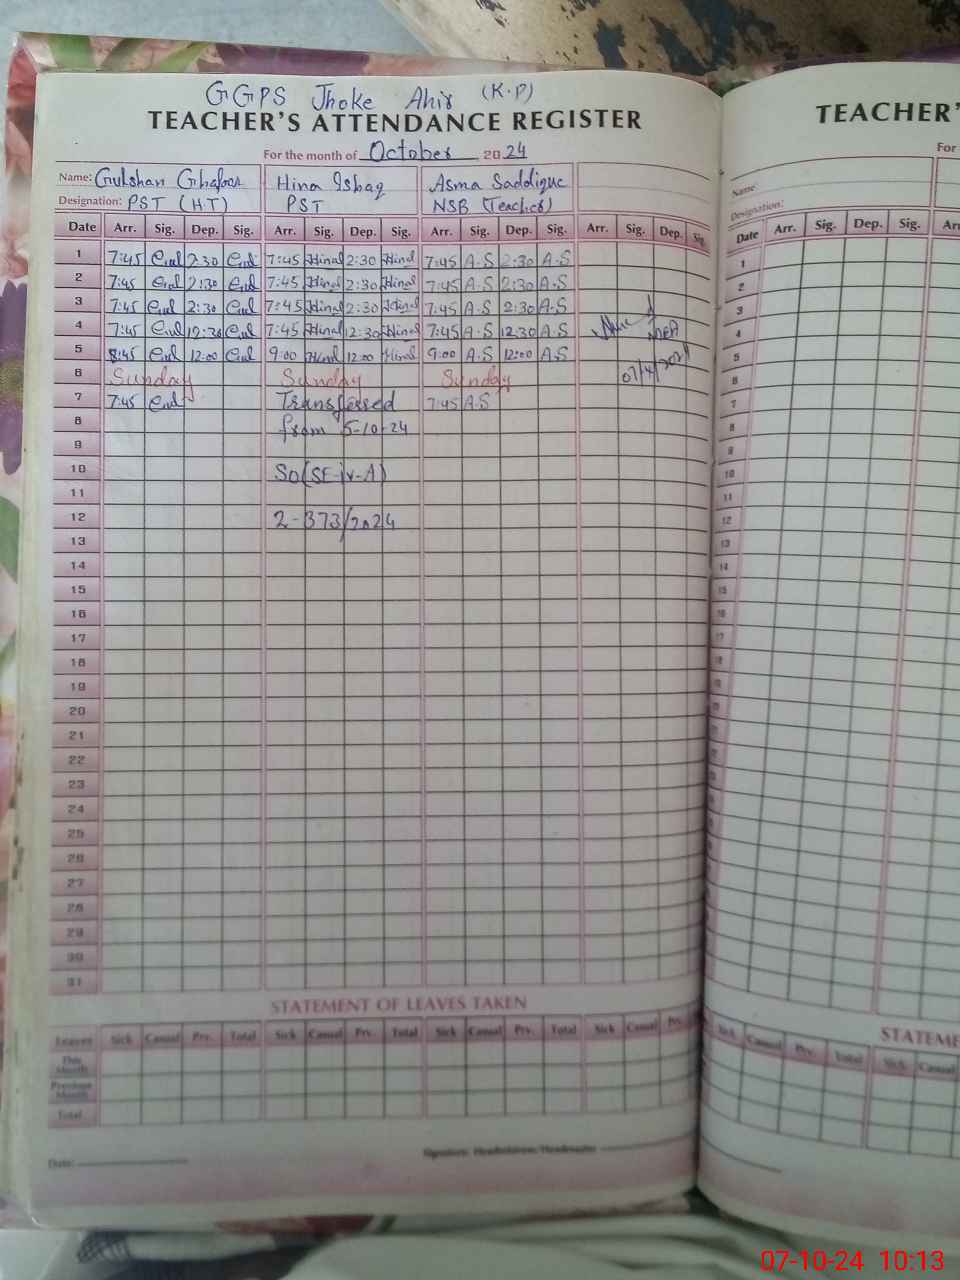 GGPS Jhoke Ahir (K.P)
TEACHER'S ATTENDANCE REGISTER
For the month of October, 2024
Name: Gulshan Ghafoor Hina Ishaq Asma Saddique
Designation: PST (H.T) PST NSB (Teacher)
Date Arr. Sig. Dep. Sig. Arr. Sig. Dep. Sig. Arr. Sig. Dep. Sig. Arr. Sig. Dep. Sig.
1 7:45 2:30 7:45 Hina 2:30 Hina 7:45 A.S 2:30 A.S
2 7:45 2:30 7:45 Hina 2:30 Hina 7:45 A.S 2:30 A.S
3 7:45 2:30 7:45 Hina 2:30 Hina 7:45 A.S 2:30 A.S
4 7:45 12:30 7:45 Hina 12:30 Hina 7:45 A.S 12:30 A.S
5 8:45 12:00 9:00 Hina 12:00 Hina 9:00 A.S 12:00 A.S
6 Sunday Sunday Sunday
7 7:45 Transferred 7:45 A.S
8 from 5-10-24
9
10 SO(SE-iv-A)
11
12 2-373/2024
13
14
15
16
17
18
19
20
21
22
23
24
25
26
27
28
29
30
31
STATEMENT OF LEAVES TAKEN
Leaves Sick Casual Prv. Total Sick Casual Prv. Total Sick Casual Prv. Total Sick Casual Prv.
This Month
Previous Month
Total
Date:
Signature: Headmistress/Headmaster
TEACHER'
For
Name
Designation:
Date Arr. Sig. Dep. Sig. Arr
1
2
3
4
5
6
7
8
9
10
11
12
13
14
15
16
17
18
STATEME
Sick Casual Prv. Total Sick Casual
07-10-24 10:13